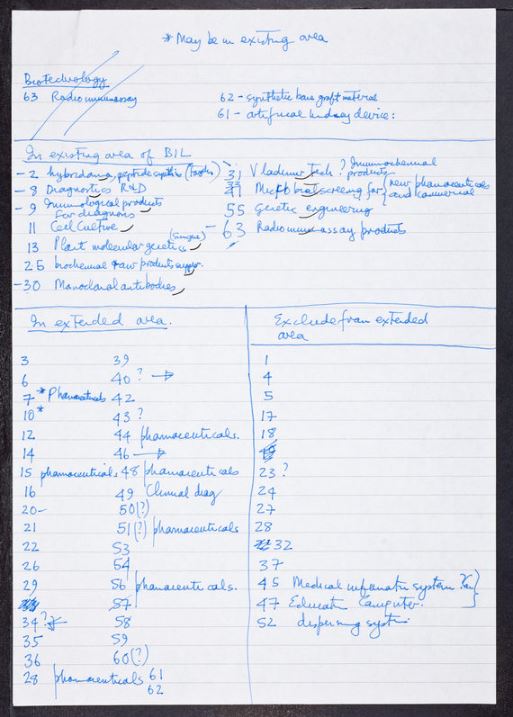 * May be in existing area
Biotechnology
63 Radioimmunoassay
62 - synthetic bone graft material
61 - artificial kidney device:
In existing area of BIL
- 2 hybridoma, peptide
- 8 Diagnostics R&D
- 9 Immunological products
for diagnosis
11 Cell Culture
13 Plant molecular genetics
25 biochemical raw products
- 30 Monoclonal antibodies
31 Vladimir Tech ? Immunochemical
products
Microbial screening for new pharmaceuticals
and commercial
55 Genetic engineering
- 63 Radioimmunoassay products
In extended area.
3
6
7 * Pharmaceuticals
10 *
12
14
15 pharmaceuticals
16
20 -
21
22
26
29
34 ?
35
36
28 pharmaceuticals
39
40 ? →
42
43 ?
44 pharmaceuticals.
46 →
48 pharmaceuticals
49 Clinical diag
50 (?)
51 (?) pharmaceuticals
53
54
56 pharmaceuticals.
57
58
59
60 (?)
61
62
Exclude from extended
area
1
4
5
17
18
23 ?
24
27
28
32
37
45 Medical information system
47 Education Computer.
52 dispensing system